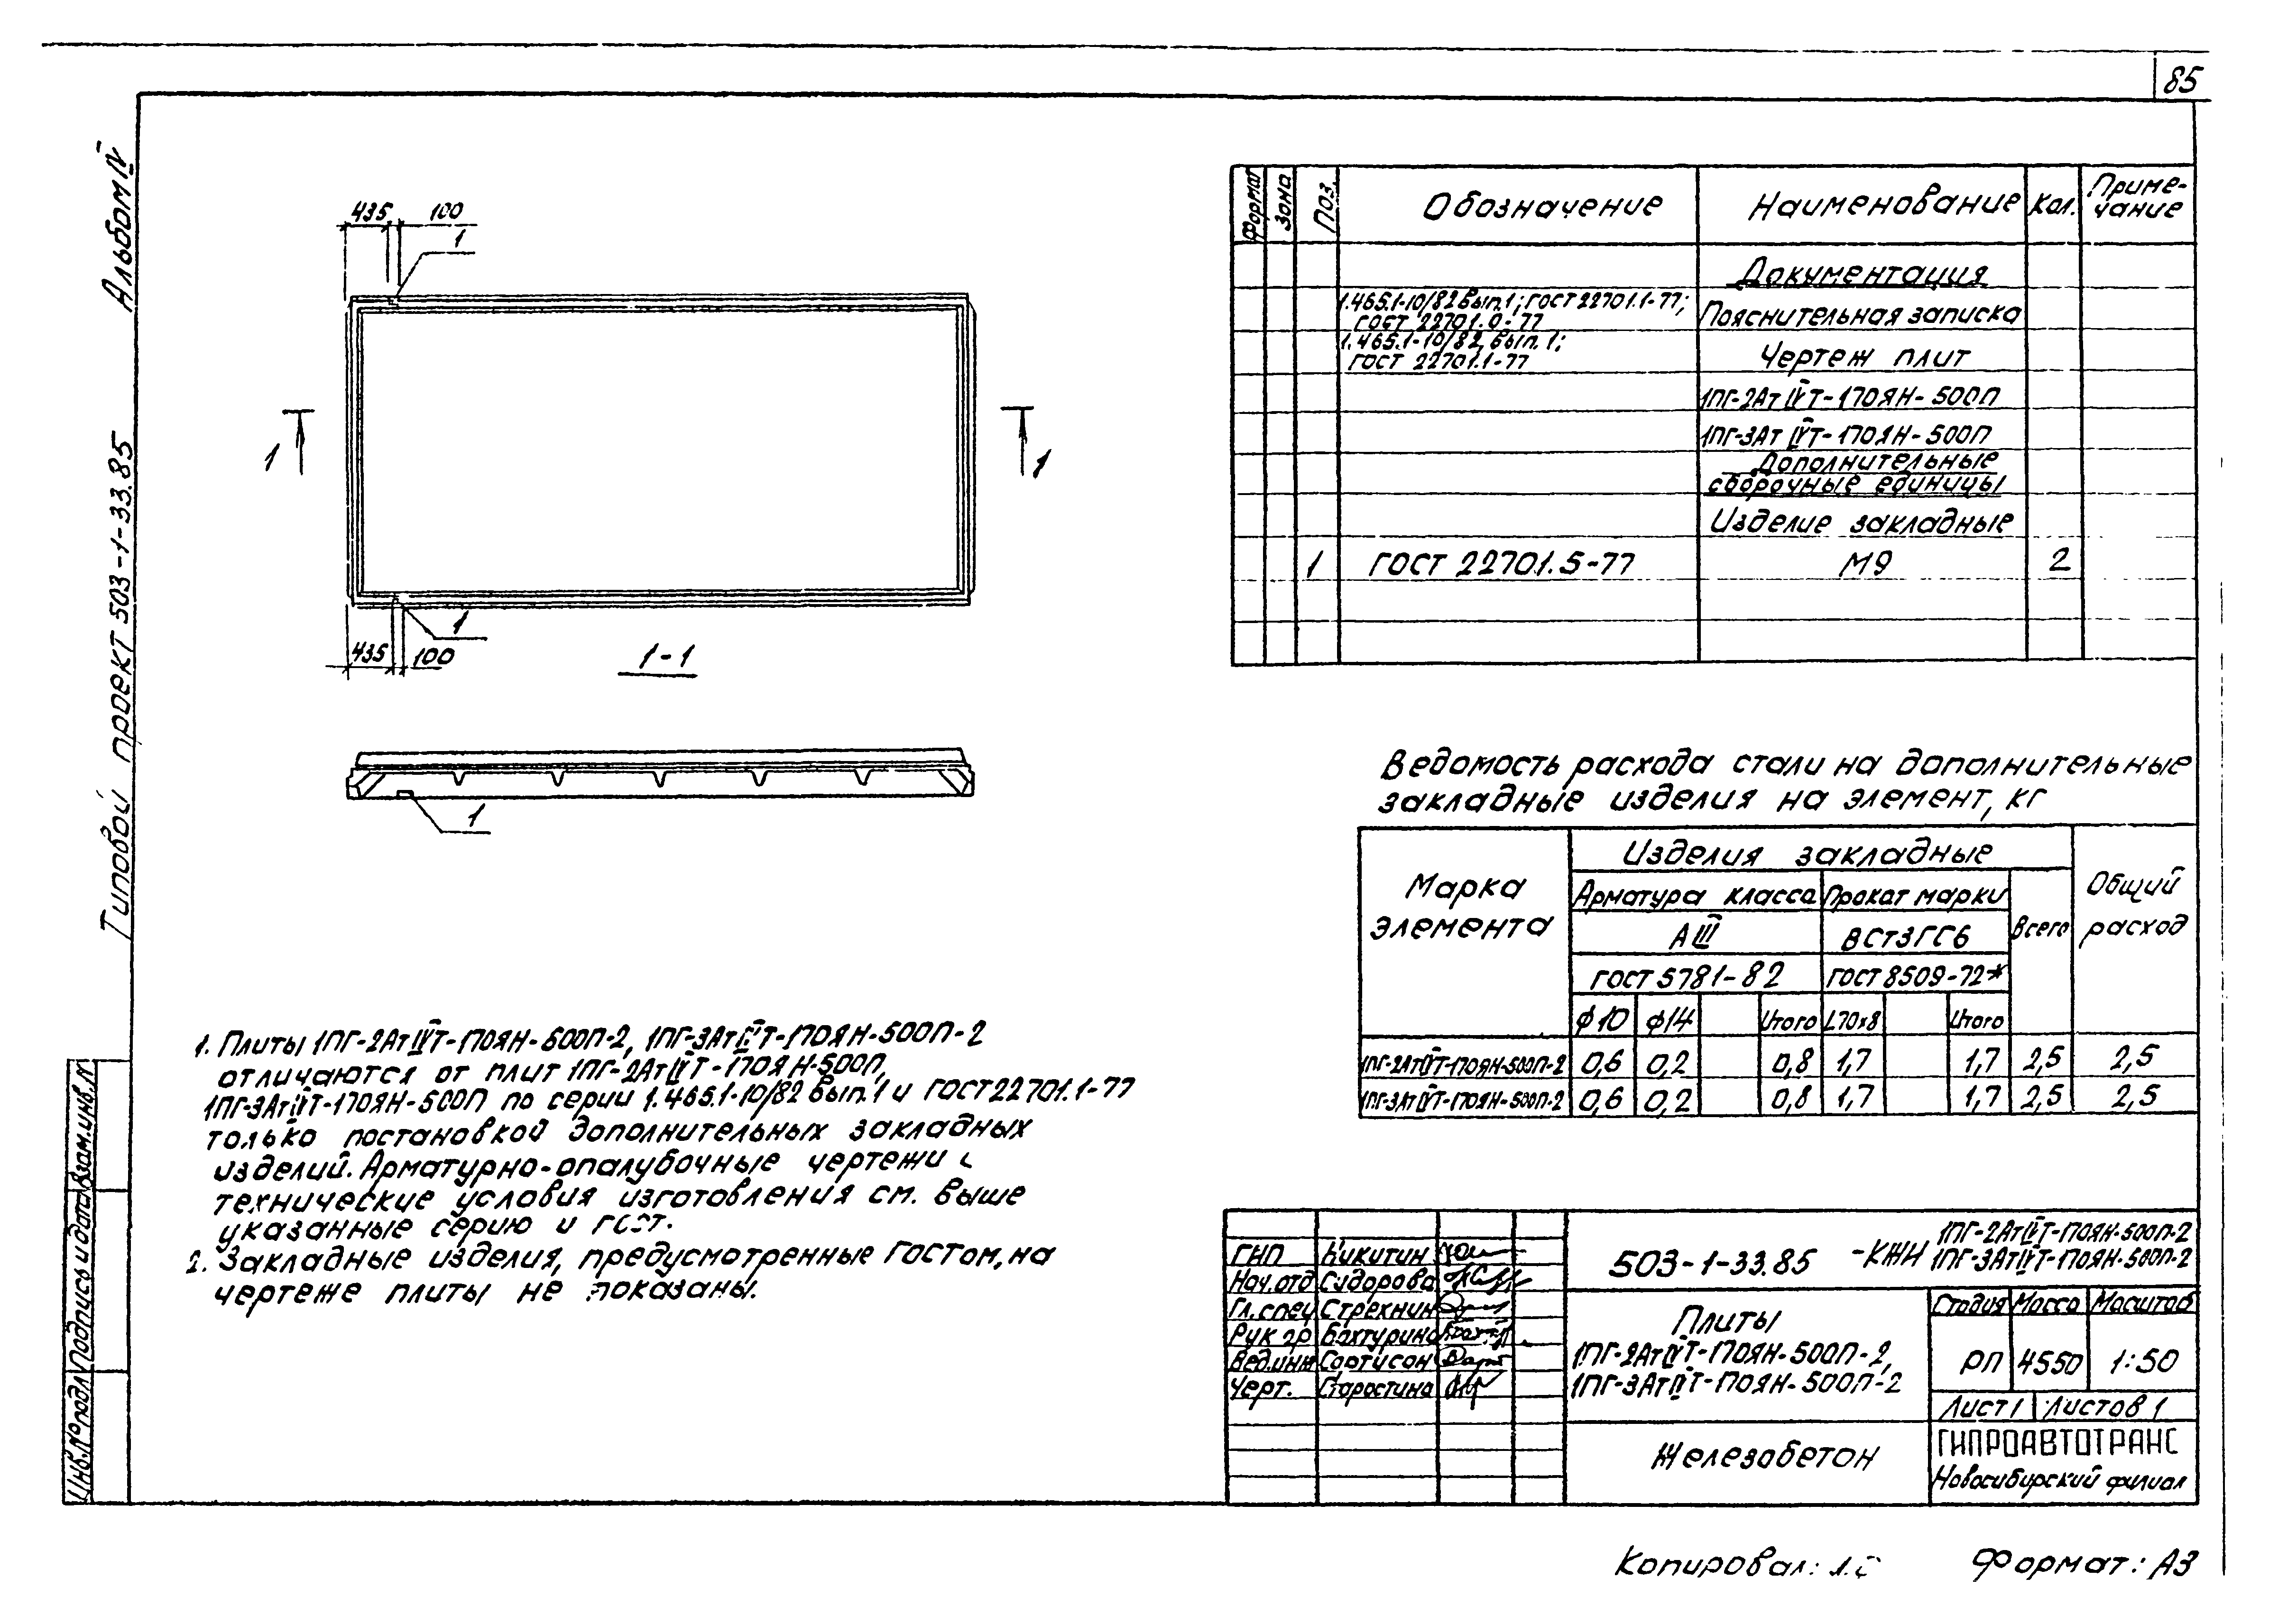 85
Альбом IV
Типовой проект 503-1-33.85
435 100
1
1 1
1
435 100
1-1
1
Формат Зона Поз. Обозначение Наименование Кол. Приме-
чание
Документация
1.465.1-10/82 вып.1; ГОСТ 22701.1-77;
ГОСТ 22701.0-77 Пояснительная записка
1.465.1-10/82, вып.1;
ГОСТ 22701.1-77 Чертеж плит
1ПГ-2АтIVТ-170ЯН-500П
1ПГ-3АтIVТ-170ЯН-500П
Дополнительные
сборочные единицы
Изделие закладные
1 ГОСТ 22701.5-77 М9 2
Ведомость расхода стали на дополнительные
закладные изделия на элемент, кг
Марка
элемента
Изделия закладные
Общий
расход
Арматура класса Прокат марки
Всего
АIII ВСт3ГС6
ГОСТ 5781-82 ГОСТ 8509-72*
ф10 ф14 Итого L70х8 Итого
1ПГ-2АтIVТ-170ЯН-500П-2 0,6 0,2 0,8 1,7 1,7 2,5 2,5
1ПГ-3АтIVТ-170ЯН-500П-2 0,6 0,2 0,8 1,7 1,7 2,5 2,5
1. Плиты 1ПГ-2АтIVТ-170ЯН-500П-2, 1ПГ-3АтIVТ-170ЯН-500П-2
отличаются от плит 1ПГ-2АтIVТ-170ЯН-500П,
1ПГ-3АтIVТ-170ЯН-500П по серии 1.465.1-10/82 вып.1 и ГОСТ 22701.1-77
только постановкой дополнительных закладных
изделий. Арматурно-опалубочные чертежи и
технические условия изготовления см. выше
указанные серию и ГОСТ.
2. Закладные изделия, предусмотренные ГОСТом, на
чертеже плиты не показаны.
Инв.№ подл Подпись и дата Взам.инв.N
ГИП Никитин
Нач.отд Сидорова
Гл.спец Стрехнин
Рук гр Бахтурина
Вед.инж
Черт. Старостина
503-1-33.85 -КЖИ 1ПГ-2АтIVТ-170ЯН-500П-2
1ПГ-3АтIVТ-170ЯН-500П-2
Плиты
1ПГ-2АтIVТ-170ЯН-500П-2,
1ПГ-3АтIVТ-170ЯН-500П-2
Стадия Масса Масштаб
РП 4550 1:50
Лист 1 Листов 1
Железобетон
ГИПРОАВТОТРАНС
Новосибирский филиал
Копировал: Формат: А3